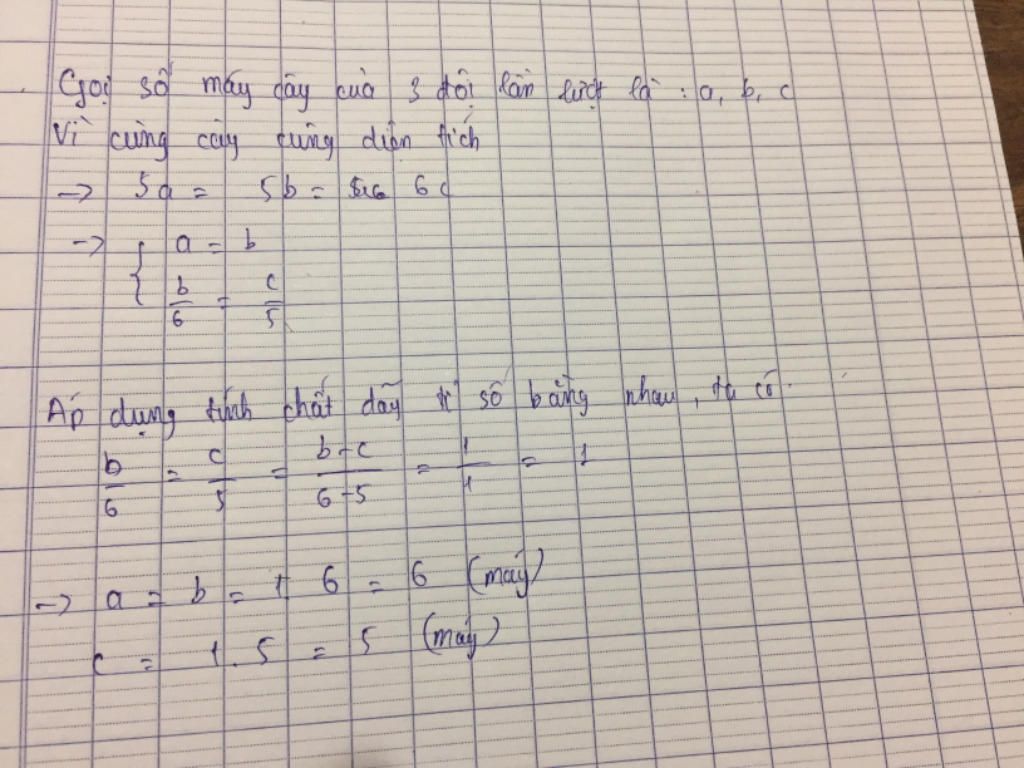 Gọi số máy cày của 3 đội lần lượt là : a, b, c
Vì cùng cày cùng diện tích
→ 5a = 5b = 6c
→ { a = b
b/6 = c/5
Áp dụng tính chất dãy tỉ số bằng nhau, ta có
b/6 = c/5 = b-c/6-5 = 1/1 = 1
→ a = b = 1 6 = 6 (máy)
c = 1.5 = 5 (máy)